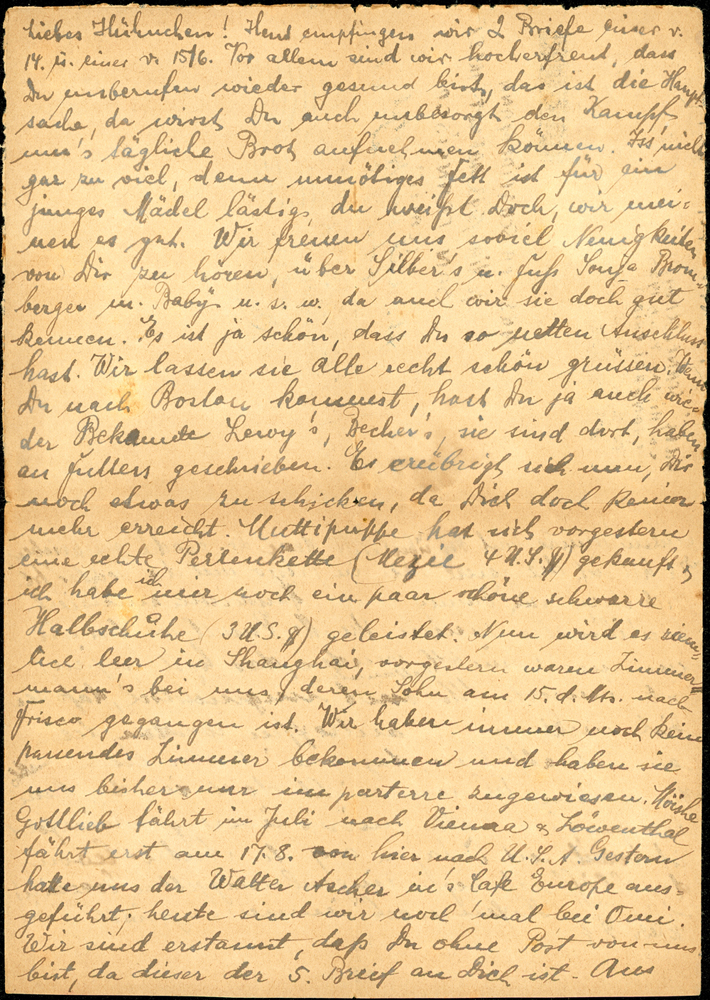 Liebes Hühnchen! Heut empfingen wir 2 Briefe einer v.
14. u. einer v. 15/6. Vor allem sind wir hocherfreut, dass
Du unberufen wieder gesund bist, das ist die Haupt-
sache, da wirst Du auch unbesorgt den Kampf
um's tägliche Brot aufnehmen können. Iss nicht
gar zu viel, denn unnötiges Fett ist für ein
junges Mädel lästig, du weißt doch, wir mei-
nen es gut. Wir freuen uns soviel Neuigkeiten
von Dir zu hören, über Silber's u. Sonja Brom-
berger m. Baby u. s. w. da auch wir sie doch gut
kennen. Es ist ja schön, dass Du so netten Anschluss
hast. Wir lassen sie alle recht schön grüssen. Wenn
Du nach Boston kommst, hast Du ja auch wie-
der Bekannte Leroy's, Becher's, sie sind dort, haben
an geschrieben. Es erübrigt sich nun, Dir
noch etwas zu schicken, da Dich doch keiner
mehr erreicht. Muttipuppe hat sich vorgestern
eine echte Perlenkette ( 4 U.S.$) gekauft,
ich habe ich mir noch ein paar schöne schwarze
Halbschuhe (3 U.S.$) geleistet. Nun wird es ziem-
lich leer in Shanghai, vorgestern waren Zimmer-
mann's bei uns, deren Sohn am 15. d. Mts. nach
Frisco gegangen ist. Wir haben immer noch kein
passendes Zimmer bekommen und haben sie
uns bisher nur im parterre zugewiesen.
Gottlieb fährt im Juli nach Vienna & Löwenthal
fährt erst am 17.8. von hier nach U.S.A. Gestern
hatte uns der Walter Ascher in's Café Europe aus-
geführt; heute sind wir noch 'mal bei Omi.
Wir sind erstaunt, daß Du ohne Post von uns
bist, da dieser der 5. Brief an Dich ist. Aus